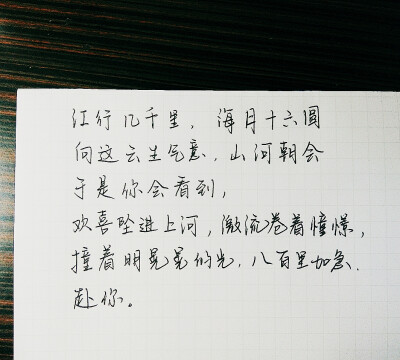 江行几千里，海月十六圆
向这云生气意，山河朝会
于是你会看到，
欢喜坠进上河，激流卷着憧憬，
撞着明晃晃的光，八百里加急，
赴你。